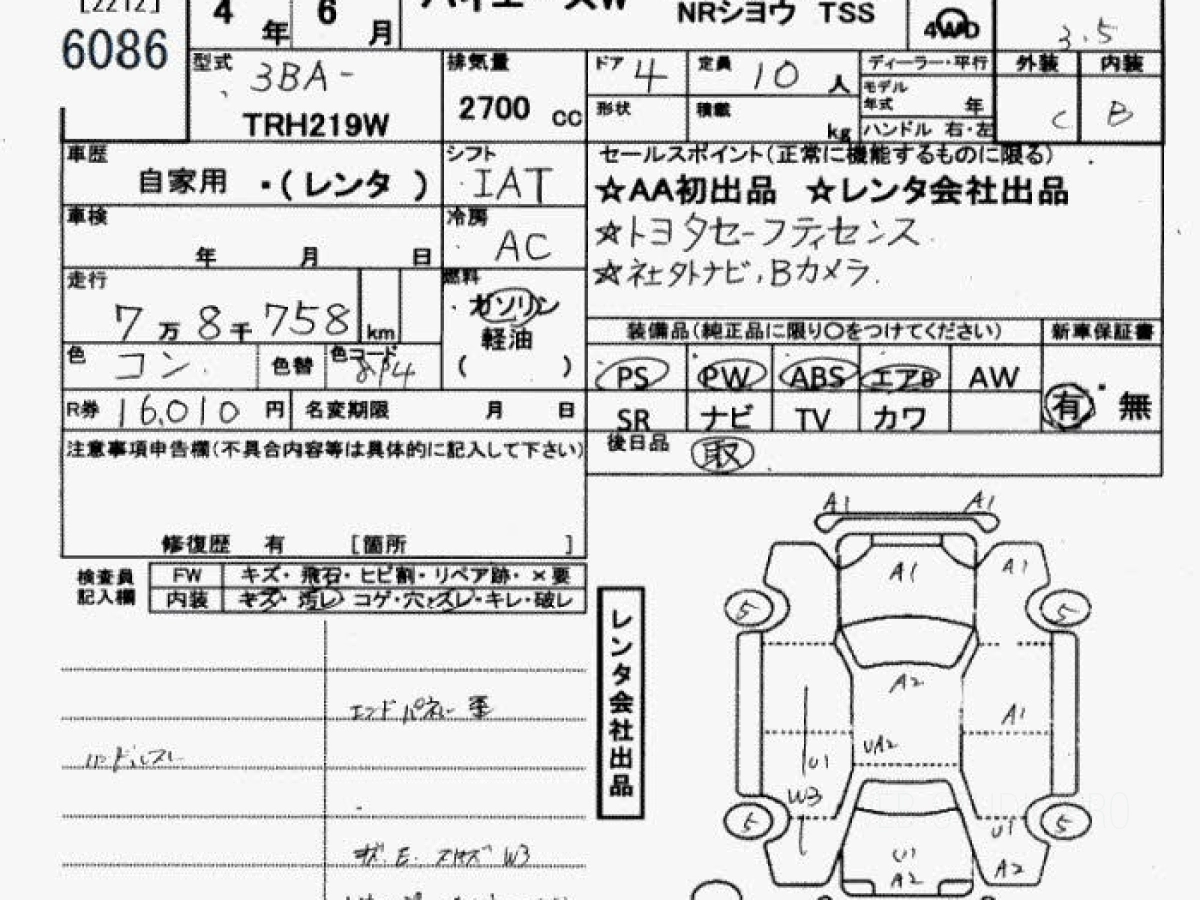 [2212]
6086
4 年 6 月
ハイエースW
NRシヨウ TSS
4WD
3.5
型式 3BA-
TRH219W
排気量
2700 cc
ドア 4
定員 10 人
形状
積載 kg
ディーラー・平行
モデル年式 年
ハンドル 右・左
外装 C
内装 B
車歴
自家用 ・(レンタ)
シフト
IAT
セールスポイント(正常に機能するものに限る)
☆AA初出品 ☆レンタ会社出品
☆トヨタセーフティセンス
☆社外ナビ,Bカメラ.
車検
年 月 日
冷房
AC
走行
7万8千758 km
燃料
ガソリン
軽油
( )
色 コン
色替
色コード
R券 16,010 円
名変期限 月 日
装備品(純正品に限り○をつけてください)
新車保証書
PS PW ABS エアB AW
SR ナビ TV カワ
有・無
後日品 取
注意事項申告欄(不具合内容等は具体的に記入して下さい)
修復歴 有 [箇所 ]
検査員記入欄
FW キズ・飛石・ヒビ割・リペア跡・×要
内装 キズ・汚レ・コゲ・穴・スレ・キレ・破レ
エンドパネル 歪
ハンドルスレ
W3
レンタ会社出品
A1 A1
A1 A1
5 5
A2
A1
UA2
U1
W3
5 5
U1
U1
A2 A2